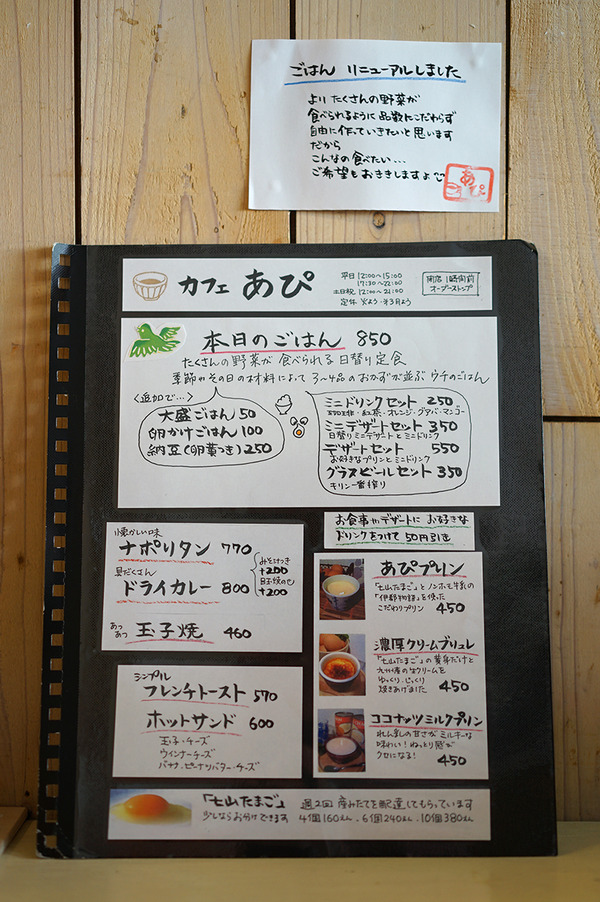 ごはん リニューアルしました
より たくさんの野菜が
食べられるように 品数にこだわらず
自由に作っていきたいと思います
だから
こんなの食べたい…
ご希望もおききしますよ
あぴ
カフェ あぴ
平日 12:00〜15:00
17:30〜22:00
土日祝 12:00〜21:00
定休 火よう・第3月よう
閉店 1時間前
オーダーストップ
本日のごはん 850
たくさんの野菜が 食べられる 日替り定食
季節やその日の材料によって 3〜4品のおかずが並ぶ ウチのごはん
<追加で…>
大盛ごはん 50
卵かけごはん 100
納豆(卵黄つき) 250
ミニドリンクセット 250
珈琲・紅茶・オレンジ・グアバ・マンゴー
ミニデザートセット 350
日替りミニデザートとミニドリンク
デザートセット 550
お好きなプリンとミニドリンク
グラスビールセット 350
キリン一番搾り
お食事やデザートに お好きな
ドリンクをつけて 50円引き
懐かしい味
ナポリタン 770
具だくさん
ドライカレー 800
みそ汁つき
+200
玉子焼のせ
+200
あつあつ 玉子焼 460
シンプル
フレンチトースト 570
ホットサンド 600
玉子・チーズ
ウインナーチーズ
バナナ・ピーナツバター・チーズ
あぴプリン
「七山たまご」とノンホモ牛乳の
「伊都物語」を使った
こだわりプリン 450
濃厚クリームブリュレ
「七山たまご」の黄身だけと
九州産の生クリームを
ゆっくり、じっくり
焼きあげました 450
ココナッツミルクプリン
れん乳の甘さがミルキーな
味わい！ねっとり感が
クセになる！ 450
「七山たまご」 週2回 産みたてを配達してもらっています
少しならお分けできます 4個160えん、6個240えん、10個380えん